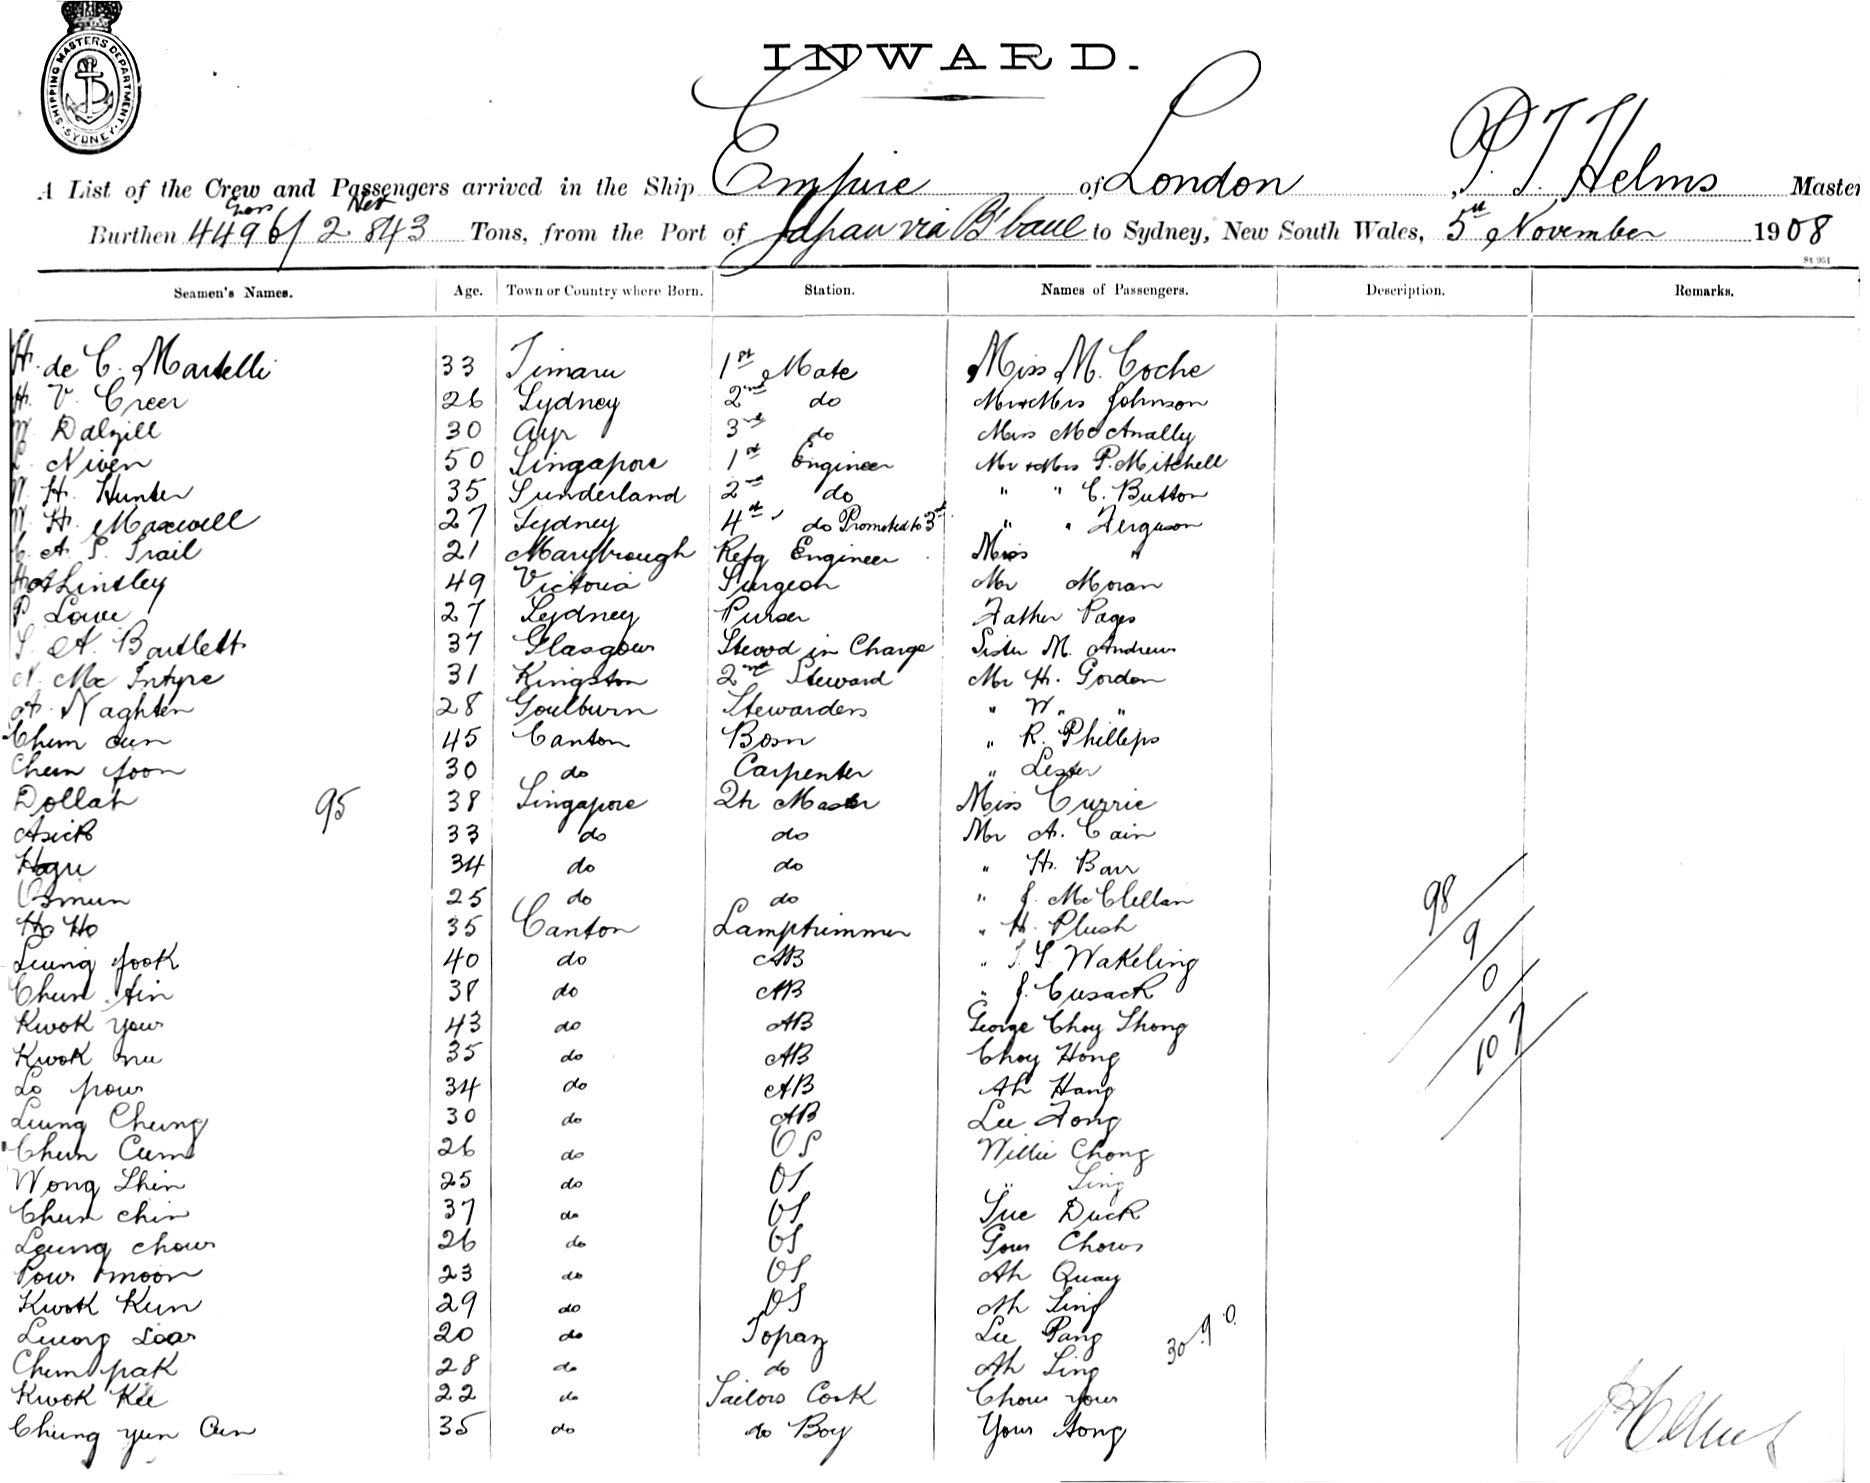 SHIPPING MASTERS DEPARTMENT · SYDNEY ·
INWARD.
A List of the Crew and Passengers arrived in the Ship Empire of London P. T. Helms Master
Gross Net
Burthen 4496 / 2843 Tons, from the Port of Japan via B'bane to Sydney, New South Wales, 5th November 1908
St 951
Seamen's Names. Age. Town or Country where Born. Station. Names of Passengers. Description. Remarks.
H. de C. Martelli 33 Timaru 1st Mate Miss M. Coche
H. V. Creer 26 Sydney 2nd do Mr & Mrs Johnson
W. Dalzill 30 Ayr 3rd do Miss McAnally
Niven 50 Singapore 1st Engineer Mr & Mrs P. Mitchell
W. H. Hunter 35 Sunderland 2nd do " " C. Button
W. H. Maxwell 27 Sydney 4th do Promoted to 3rd " " Ferguson
C. A. S. Trail 21 Marybrough Refg Engineer Miss "
Linsley 49 Victoria Surgeon Mr Moran
P. Lowe 27 Sydney Purser Father Pages
S. A. Bartlett 37 Glasgow Stewd in Charge Sister M. Andrew
N. McIntyre 31 Kingston 2nd Steward Mr H. Gordon
A. Naghten 28 Goulburn Stewardess " W. "
Chem Cun 45 Canton Bosn " R. Phillips
Chem foon 30 do Carpenter " Lester
Dollah 95 38 Singapore Qtr Master Miss Currie
Asick 33 do do Mr A. Cain
34 do do " H. Barr
Osmun 25 do do " J. McClellan
Ho Ho 35 Canton Lamptrimmer " H. Plush 98
Leung fook 40 do AB " T. S. Wakeling 9
Chun 38 do AB " J. Cusack 0
Kwok your 43 do AB George Choy Shong
Kwok 35 do AB Choy Hong 107
Lo pow 34 do AB Ah Hang
Leung Cheung 30 do AB Lee Fong
Chun Cum 26 do OS Willie Chong
Wong Shin 25 do OS " Sing
Chun chin 37 do OS Sue Duck
Leung chow 26 do OS Gow Chows
Pow moon 23 do OS Ah Quay
Kwok Kun 29 do OS Ah Sing
Leung 20 do Topaz Lee Pang 30 9 0
Chem pak 28 do do Ah Sing
Kwok Kee 22 do Sailors Cook Chow your
Cheung yun Cun 35 do do Boy Your Hong